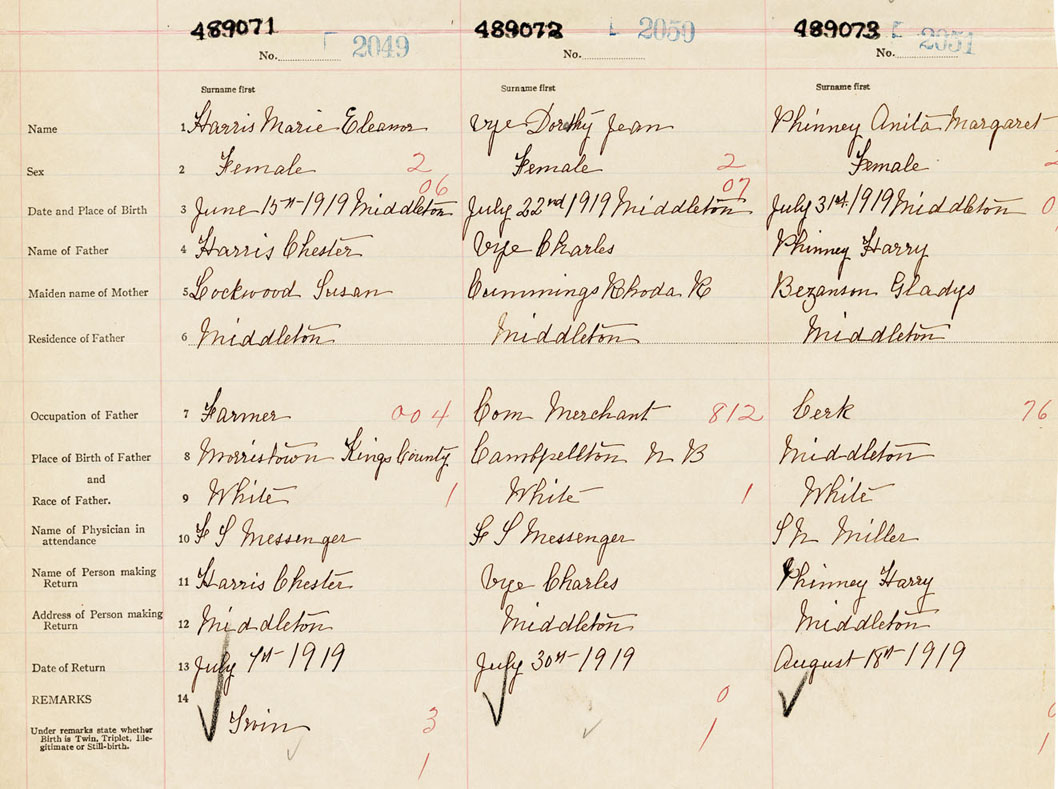 489071 2049 489072 2050 489073 2051
No. No. No.
Surname first Surname first Surname first
Name 1 Harris Marie Eleanor Vye Dorothy Jean Phinney Anita Margaret
Sex 2 Female 2 Female 2 Female 2
06 07
Date and Place of Birth 3 June 15th 1919 Middleton July 22nd 1919 Middleton July 31st 1919 Middleton 0
Name of Father 4 Harris Chester Vye Charles Phinney Harry
Maiden name of Mother 5 Lockwood Susan Cummings Rhoda R Bezanson Gladys
Residence of Father 6 Middleton Middleton Middleton
Occupation of Father 7 Farmer 004 Com Merchant 812 Cerk 76
Place of Birth of Father 8 Morristown Kings County Cambpellton N B Middleton
and
Race of Father. 9 White 1 White 1 White
Name of Physician in
attendance 10 F S Messenger F S Messenger S N Miller
Name of Person making
Return 11 Harris Chester Vye Charles Phinney Harry
Address of Person making
Return 12 Middleton Middleton Middleton
Date of Return 13 July 1919 July 30th 1919 August 18th 1919
REMARKS 14 0
Under remarks state whether
Birth is Twin, Triplet, Ille-
gitimate or Still-birth.
3 1
1 1